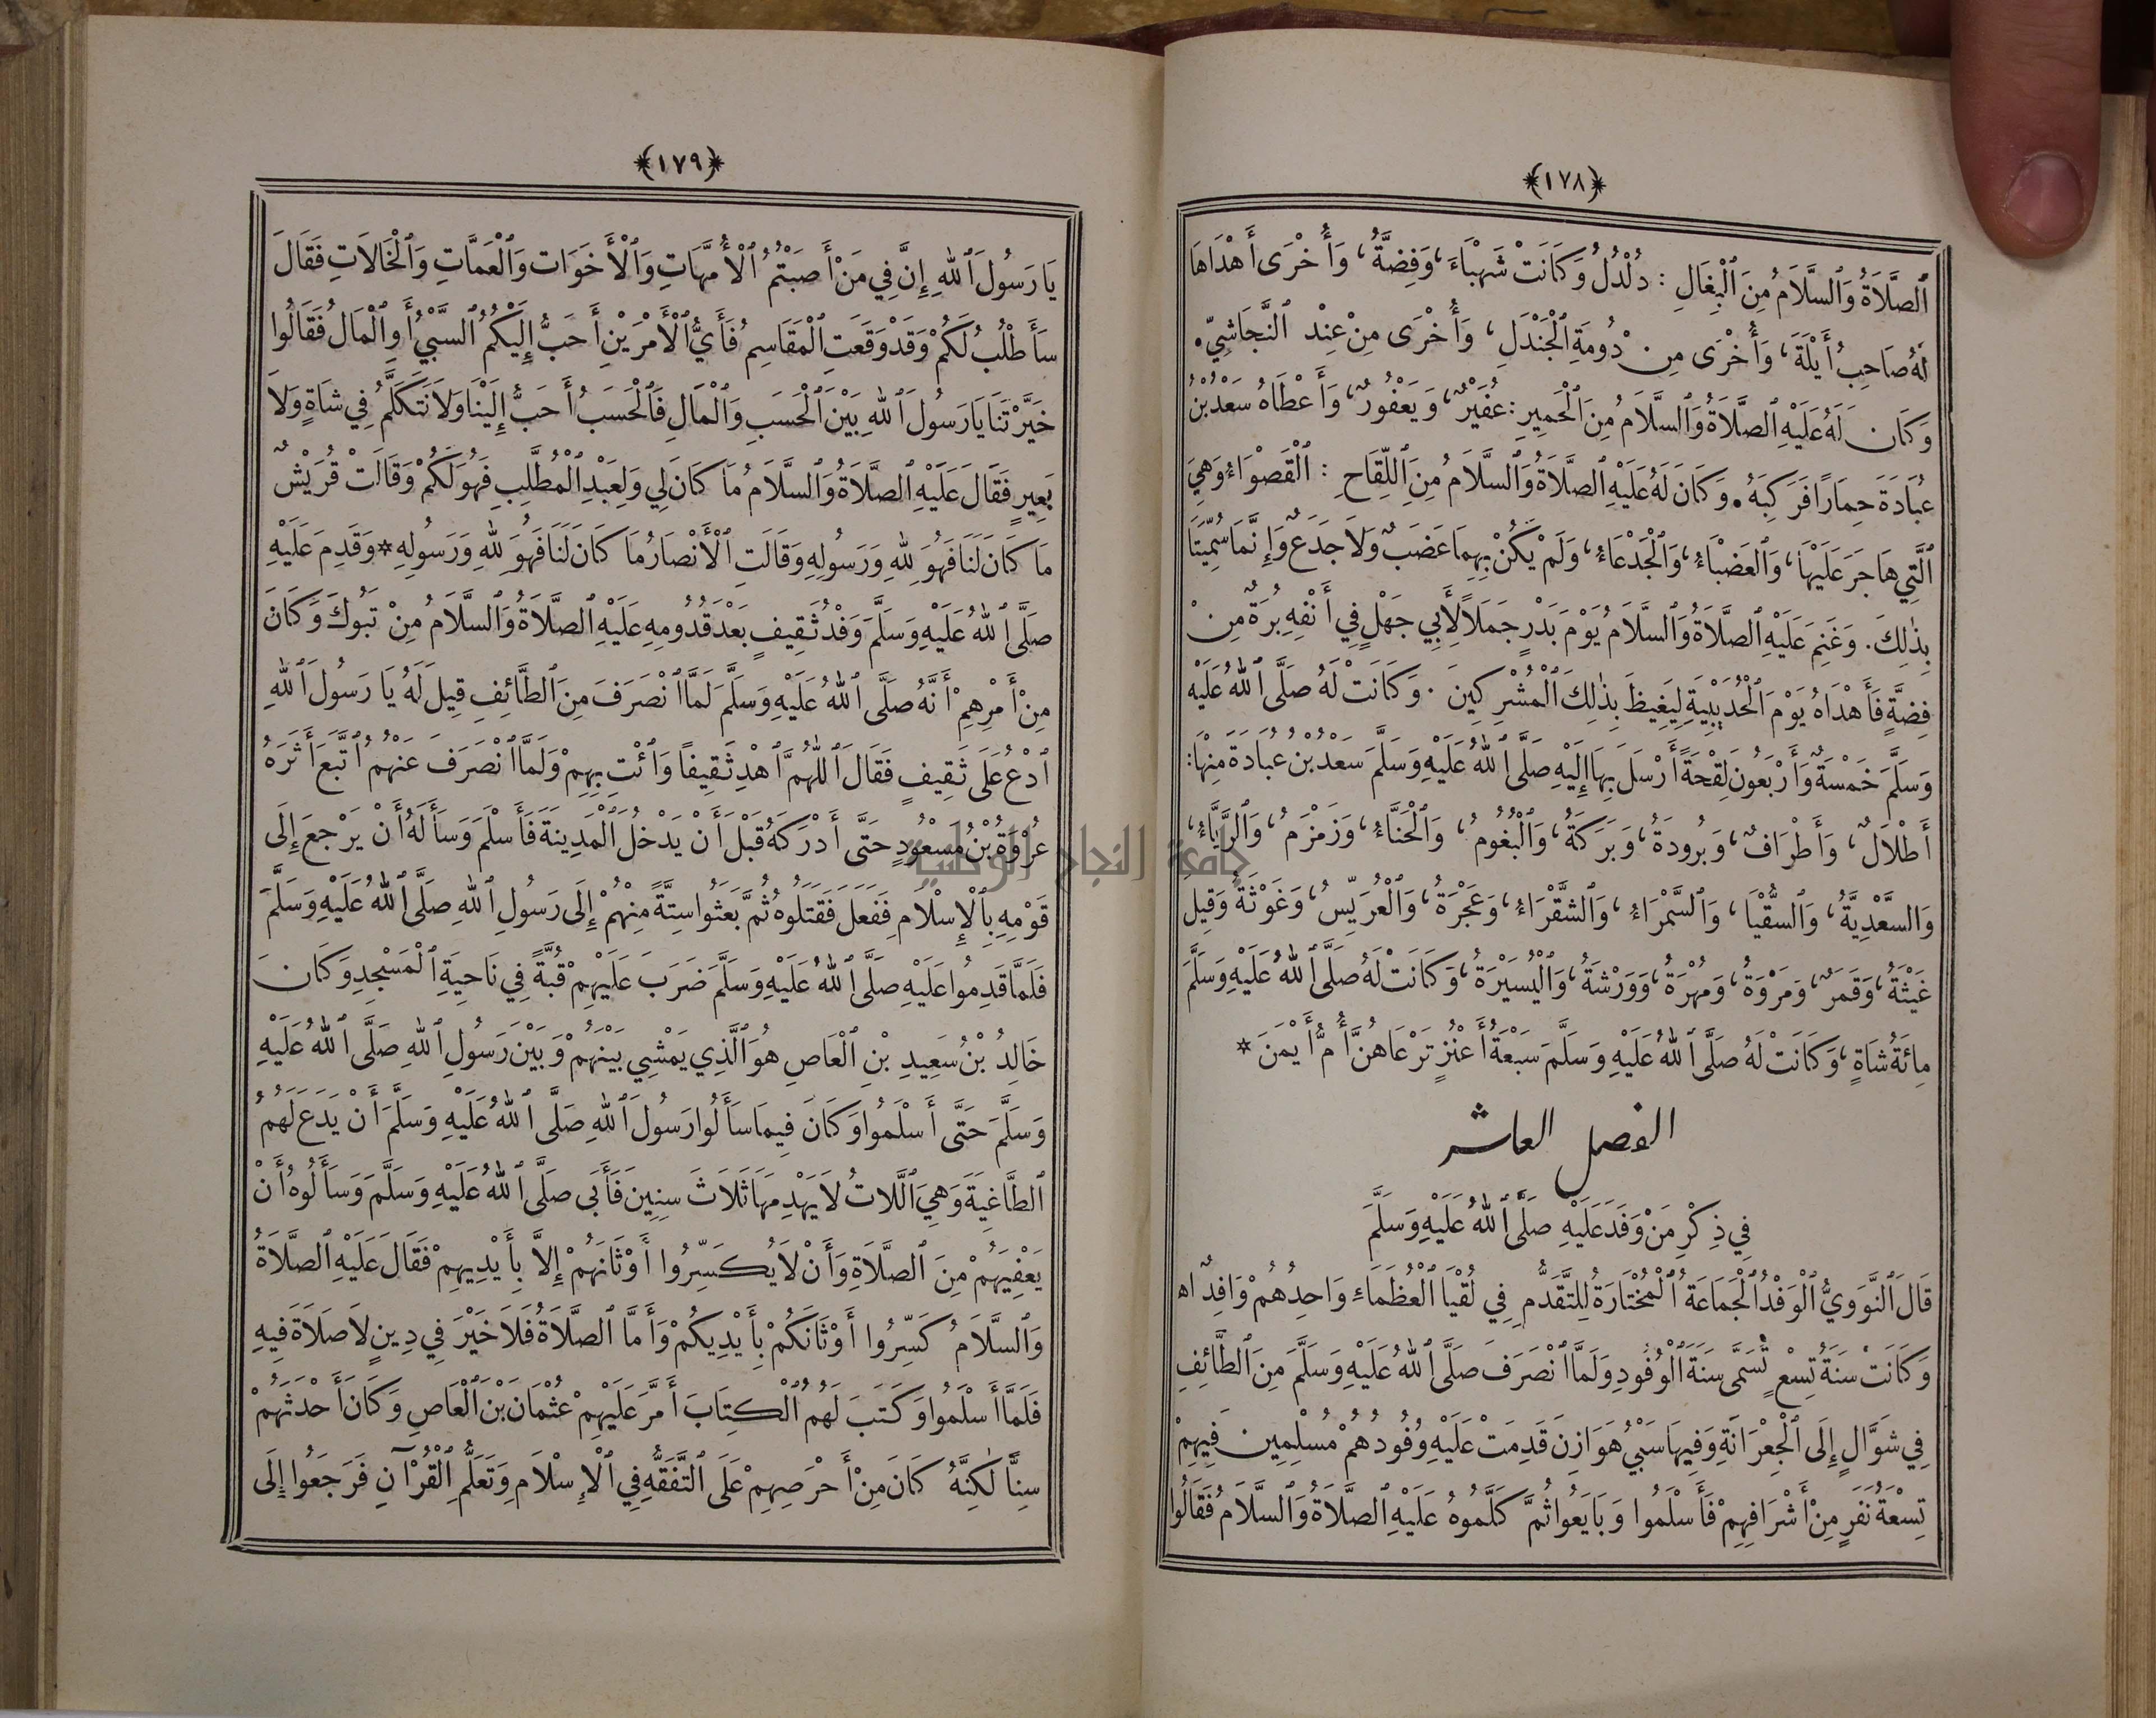 ﴿١٧٨﴾
ٱلصَّلَاةُ وَٱلسَّلَامُ مِنَ ٱلْبِغَالِ : دُلْدُلُ وَكَانَتْ شَهْبَاءَ ، وَفِضَّةُ ، وَأُخْرَى أَهْدَاهَا
لَهُ صَاحِبُ أَيْلَةَ ، وَأُخْرَى مِنْ دُومَةِ ٱلْجَنْدَلِ ، وَأُخْرَى مِنْ عِنْدِ ٱلنَّجَاشِيِّ .
وَكَانَ لَهُ عَلَيْهِ ٱلصَّلَاةُ وَٱلسَّلَامُ مِنَ ٱلْحَمِيرِ : عُفَيْرٌ ، وَيَعْفُورٌ ، وَأَعْطَاهُ سَعْدُ بْنُ
عُبَادَةَ حِمَارًا فَرَكِبَهُ . وَكَانَ لَهُ عَلَيْهِ ٱلصَّلَاةُ وَٱلسَّلَامُ مِنَ ٱللِّقَاحِ : ٱلْقَصْوَاءُ وَهِيَ
ٱلَّتِي هَاجَرَ عَلَيْهَا ، وَٱلْعَضْبَاءُ ، وَٱلْجَدْعَاءُ ، وَلَمْ يَكُنْ بِهِمَا عَضَبٌ وَلَا جَدَعٌ وَإِنَّمَا سُمِّيَتَا
بِذٰلِكَ . وَغَنِمَ عَلَيْهِ ٱلصَّلَاةُ وَٱلسَّلَامُ يَوْمَ بَدْرٍ جَمَلًا لِأَبِي جَهْلٍ فِي أَنْفِهِ بُرَةٌ مِنْ
فِضَّةٍ فَأَهْدَاهُ يَوْمَ ٱلْحُدَيْبِيَةِ لِيَغِيظَ بِذٰلِكَ ٱلْمُشْرِكِينَ . وَكَانَتْ لَهُ صَلَّى ٱللهُ عَلَيْهِ
وَسَلَّمَ خَمْسَةٌ وَأَرْبَعُونَ لِقْحَةً أَرْسَلَ بِهَا إِلَيْهِ صَلَّى ٱللهُ عَلَيْهِ وَسَلَّمَ سَعْدُ بْنُ عُبَادَةَ مِنْهَا :
أَطْلَالٌ ، وَأَطْرَافٌ ، وَبُرْدَةُ ، وَبَرَكَةُ ، وَٱلْبُغُومُ ، وَٱلْحَنَّاءُ ، وَزَمْزَمُ ، وَٱلرَّيَّاءُ ،
وَالسَّعْدِيَّةُ ، وَٱلسُّقْيَا ، وَٱلسَّمْرَاءُ ، وَٱلشَّقْرَاءُ ، وَعَجْرَةُ ، وَٱلْعُرَيِّسُ ، وَغَوْثَةُ وَقِيلَ
غَيْثَةُ ، وَقَمَرٌ ، وَمَرْوَةُ ، وَمُهْرَةُ ، وَوَرْشَةُ ، وَٱلْيُسَيْرَةُ ، وَكَانَتْ لَهُ صَلَّى ٱللهُ عَلَيْهِ وَسَلَّمَ
مِائَةُ شَاةٍ ، وَكَانَتْ لَهُ صَلَّى ٱللهُ عَلَيْهِ وَسَلَّمَ سَبْعَةُ أَعْنُزٍ تَرْعَاهُنَّ أُمُّ أَيْمَنَ *
الفصل العاشر
فِي ذِكْرِ مَنْ وَفَدَ عَلَيْهِ صَلَّى ٱللهُ عَلَيْهِ وَسَلَّمَ
قَالَ ٱلنَّوَوِيُّ ٱلْوَفْدُ ٱلْجَمَاعَةُ ٱلْمُخْتَارَةُ لِلتَّقَدُّمِ فِي لُقْيَا ٱلْعُظَمَاءِ وَاحِدُهُمْ وَافِدٌ اه
وَكَانَتْ سَنَةُ تِسْعٍ تُسَمَّى سَنَةَ ٱلْوُفُودِ وَلَمَّا ٱنْصَرَفَ صَلَّى ٱللهُ عَلَيْهِ وَسَلَّمَ مِنَ ٱلطَّائِفِ
فِي شَوَّالٍ إِلَى ٱلْجِعْرَانَةِ وَفِيهَا سَبْيُ هَوَازِنَ قَدِمَتْ عَلَيْهِ وُفُودُهُمْ مُسْلِمِينَ فِيهِمْ
تِسْعَةُ نَفَرٍ مِنْ أَشْرَافِهِمْ فَأَسْلَمُوا وَبَايَعُوا ثُمَّ كَلَّمُوهُ عَلَيْهِ ٱلصَّلَاةُ وَٱلسَّلَامُ فَقَالُوا
﴿١٧٩﴾
يَا رَسُولَ ٱللهِ إِنَّ فِي مَنْ أَصَبْتُمُ ٱلْأُمَّهَاتِ وَٱلْأَخَوَاتِ وَٱلْعَمَّاتِ وَٱلْخَالَاتِ فَقَالَ
سَأَطْلُبُ لَكُمْ وَقَدْ وَقَعَتِ ٱلْمَقَاسِمُ فَأَيُّ ٱلْأَمْرَيْنِ أَحَبُّ إِلَيْكُمُ ٱلسَّبْيُ أَوِ ٱلْمَالُ فَقَالُوا
خَيَّرْتَنَا يَا رَسُولَ ٱللهِ بَيْنَ ٱلْحَسَبِ وَٱلْمَالِ فَٱلْحَسَبُ أَحَبُّ إِلَيْنَا وَلَا نَتَكَلَّمُ فِي شَاةٍ وَلَا
بَعِيرٍ فَقَالَ عَلَيْهِ ٱلصَّلَاةُ وَٱلسَّلَامُ مَا كَانَ لِي وَلِعَبْدِ ٱلْمُطَّلِبِ فَهُوَ لَكُمْ وَقَالَتْ قُرَيْشٌ
مَا كَانَ لَنَا فَهُوَ لِلهِ وَرَسُولِهِ وَقَالَتِ ٱلْأَنْصَارُ مَا كَانَ لَنَا فَهُوَ لِلهِ وَرَسُولِهِ * وَقَدِمَ عَلَيْهِ
صَلَّى ٱللهُ عَلَيْهِ وَسَلَّمَ وَفْدُ ثَقِيفٍ بَعْدَ قُدُومِهِ عَلَيْهِ ٱلصَّلَاةُ وَٱلسَّلَامُ مِنْ تَبُوكَ وَكَانَ
مِنْ أَمْرِهِمْ أَنَّهُ صَلَّى ٱللهُ عَلَيْهِ وَسَلَّمَ لَمَّا ٱنْصَرَفَ مِنَ ٱلطَّائِفِ قِيلَ لَهُ يَا رَسُولَ ٱللهِ
ٱدْعُ عَلَى ثَقِيفٍ فَقَالَ ٱللّٰهُمَّ ٱهْدِ ثَقِيفًا وَٱئْتِ بِهِمْ وَلَمَّا ٱنْصَرَفَ عَنْهُمُ ٱتَّبَعَ أَثَرَهُ
عُرْوَةُ بْنُ مَسْعُودٍ حَتَّى أَدْرَكَهُ قَبْلَ أَنْ يَدْخُلَ ٱلْمَدِينَةَ فَأَسْلَمَ وَسَأَلَهُ أَنْ يَرْجِعَ إِلَى
قَوْمِهِ بِٱلْإِسْلَامِ فَفَعَلَ فَقَتَلُوهُ ثُمَّ بَعَثُوا سِتَّةً مِنْهُمْ إِلَى رَسُولِ ٱللهِ صَلَّى ٱللهُ عَلَيْهِ وَسَلَّمَ
فَلَمَّا قَدِمُوا عَلَيْهِ صَلَّى ٱللهُ عَلَيْهِ وَسَلَّمَ ضَرَبَ عَلَيْهِمْ قُبَّةً فِي نَاحِيَةِ ٱلْمَسْجِدِ وَكَانَ
خَالِدُ بْنُ سَعِيدِ بْنِ ٱلْعَاصِ هُوَ ٱلَّذِي يَمْشِي بَيْنَهُمْ وَبَيْنَ رَسُولِ ٱللهِ صَلَّى ٱللهُ عَلَيْهِ
وَسَلَّمَ حَتَّى أَسْلَمُوا وَكَانَ فِيمَا سَأَلُوا رَسُولَ ٱللهِ صَلَّى ٱللهُ عَلَيْهِ وَسَلَّمَ أَنْ يَدَعَ لَهُمُ
ٱلطَّاغِيَةَ وَهِيَ ٱللَّاتُ لَا يَهْدِمُهَا ثَلَاثَ سِنِينَ فَأَبَى صَلَّى ٱللهُ عَلَيْهِ وَسَلَّمَ وَسَأَلُوهُ أَنْ
يَعْفِيَهُمْ مِنَ ٱلصَّلَاةِ وَأَنْ لَا يُكَسِّرُوا أَوْثَانَهُمْ إِلَّا بِأَيْدِيهِمْ فَقَالَ عَلَيْهِ ٱلصَّلَاةُ
وَٱلسَّلَامُ كَسِّرُوا أَوْثَانَكُمْ بِأَيْدِيكُمْ وَأَمَّا ٱلصَّلَاةُ فَلَا خَيْرَ فِي دِينٍ لَا صَلَاةَ فِيهِ
فَلَمَّا أَسْلَمُوا وَكَتَبَ لَهُمُ ٱلْكِتَابَ أَمَّرَ عَلَيْهِمْ عُثْمَانَ بْنَ ٱلْعَاصِ وَكَانَ أَحْدَثَهُمْ
سِنًّا لٰكِنَّهُ كَانَ مِنْ أَحْرَصِهِمْ عَلَى ٱلتَّفَقُّهِ فِي ٱلْإِسْلَامِ وَتَعَلُّمِ ٱلْقُرْآنِ فَرَجَعُوا إِلَى
جامعة النجاح الوطنية